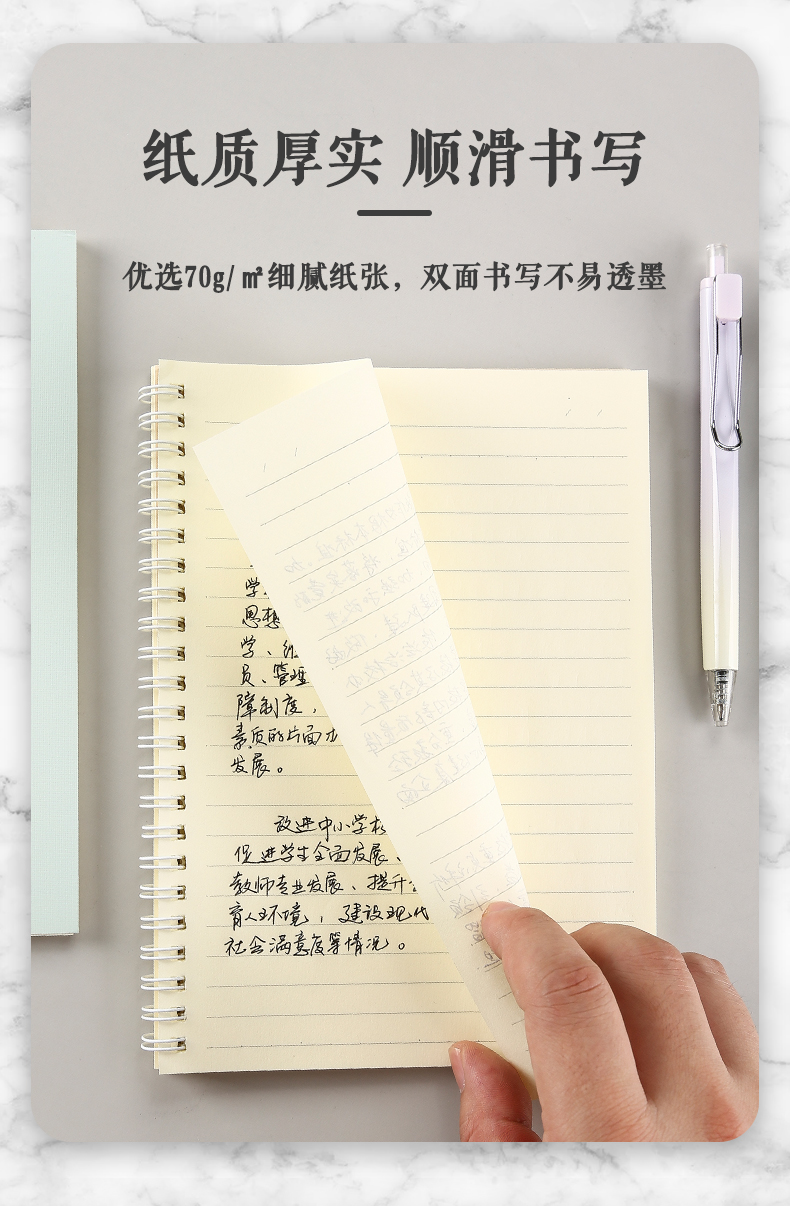 纸质厚实 顺滑书写
优选70g/㎡细腻纸张，双面书写不易透墨
学、
思想
学、
员、管理
障制度，
素质的片面
发展。
改进中小学校
促进学生全面发展、
教师专业发展、提升
育人环境，建设现代
社会满意度等情况。